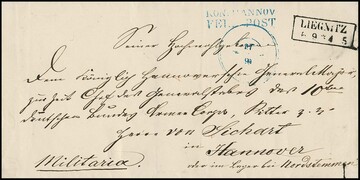 KÖN. HANNOV
FELDPOST
LIEGNITZ
Seiner Hochwohlgeboren
Dem Königlich Hannoverschen General Major
zur Zeit Chef des Generalstabes des 10ten
deutschen Bundes Armee Corps, Ritter
Herrn von Sichart
in
Hannover
Militaria.
der im Lager bei Nordstemmen